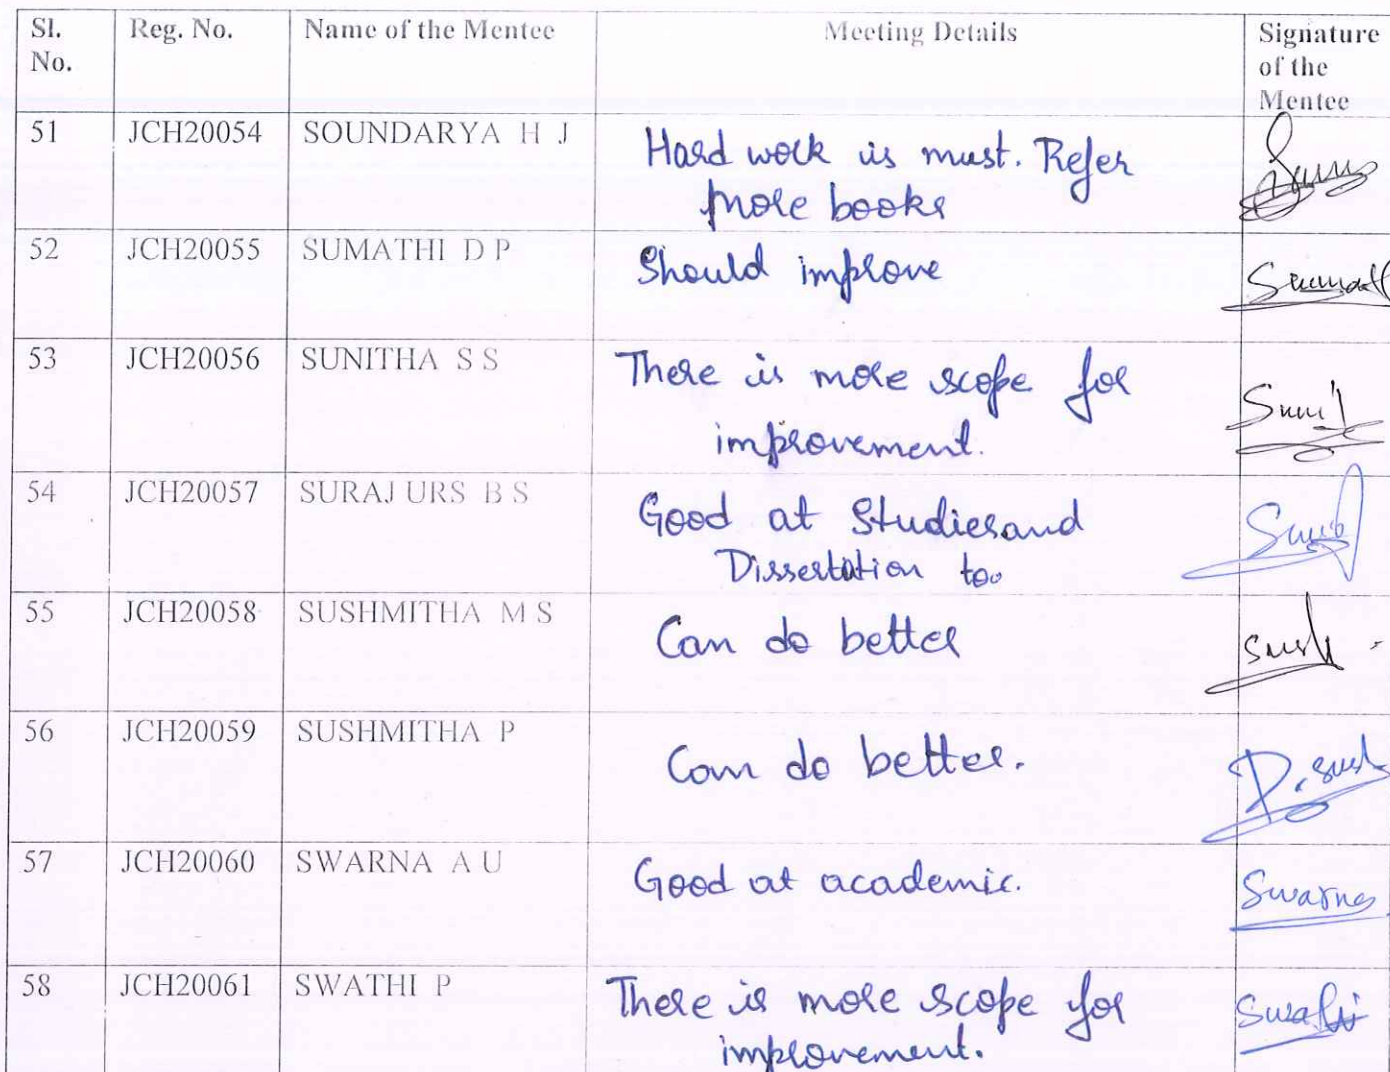 Sl. No. Reg. No. Name of the Mentee Meeting Details Signature of the Mentee
51 JCH20054 SOUNDARYA H J Hard work is must. Refer
more books
52 JCH20055 SUMATHI D P Should improve
53 JCH20056 SUNITHA S S There is more scope for
improvement.
54 JCH20057 SURAJ URS B S Good at Studies and
Dissertation too
55 JCH20058 SUSHMITHA M S Can do better
56 JCH20059 SUSHMITHA P Can do better.
57 JCH20060 SWARNA A U Good at academic. Swarna
58 JCH20061 SWATHI P There is more scope for Swathi
improvement.